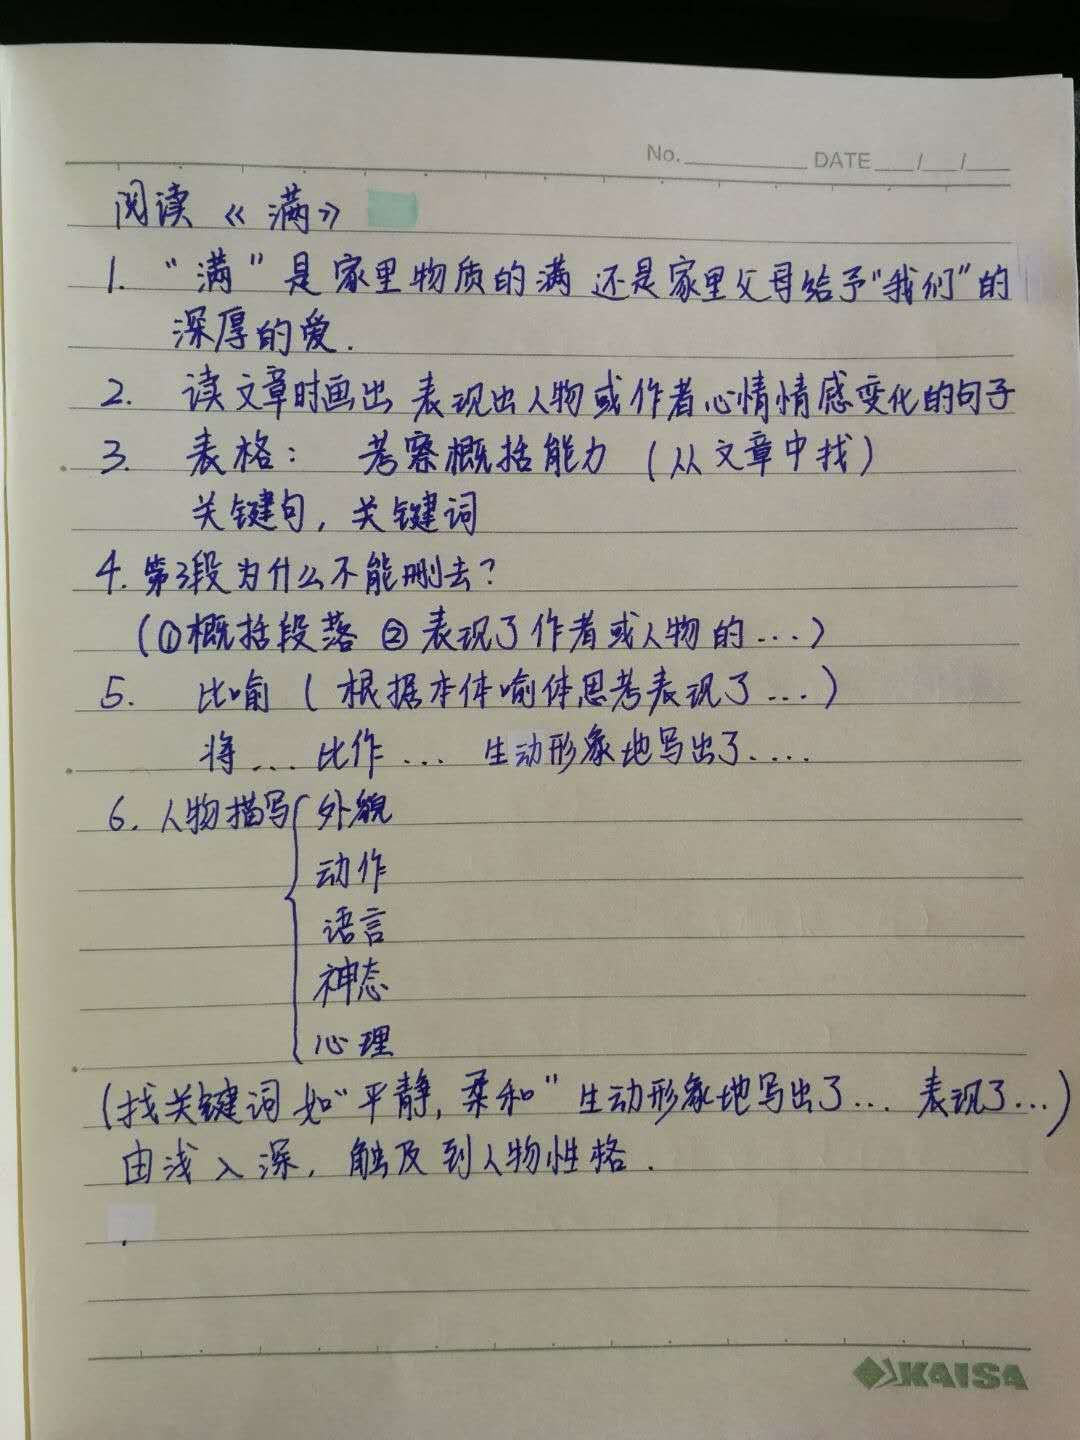 No. DATE / /
阅读《满》
1. “满”是家里物质的满 还是家里父母给予“我们”的
深厚的爱.
2. 读文章时画出 表现出人物或作者心情情感变化的句子
3. 表格： 考察概括能力（从文章中找）
关键句，关键词
4. 第3段为什么不能删去？
（①概括段落 ②表现了作者或人物的...）
5. 比喻（根据本体喻体思考表现了...）
将... 比作... 生动形象地写出了....
6. 人物描写{外貌
动作
语言
神态
心理
（找关键词 如“平静，柔和”生动形象地写出了... 表现了...）
由浅入深，触及到人物性格.
KAISA